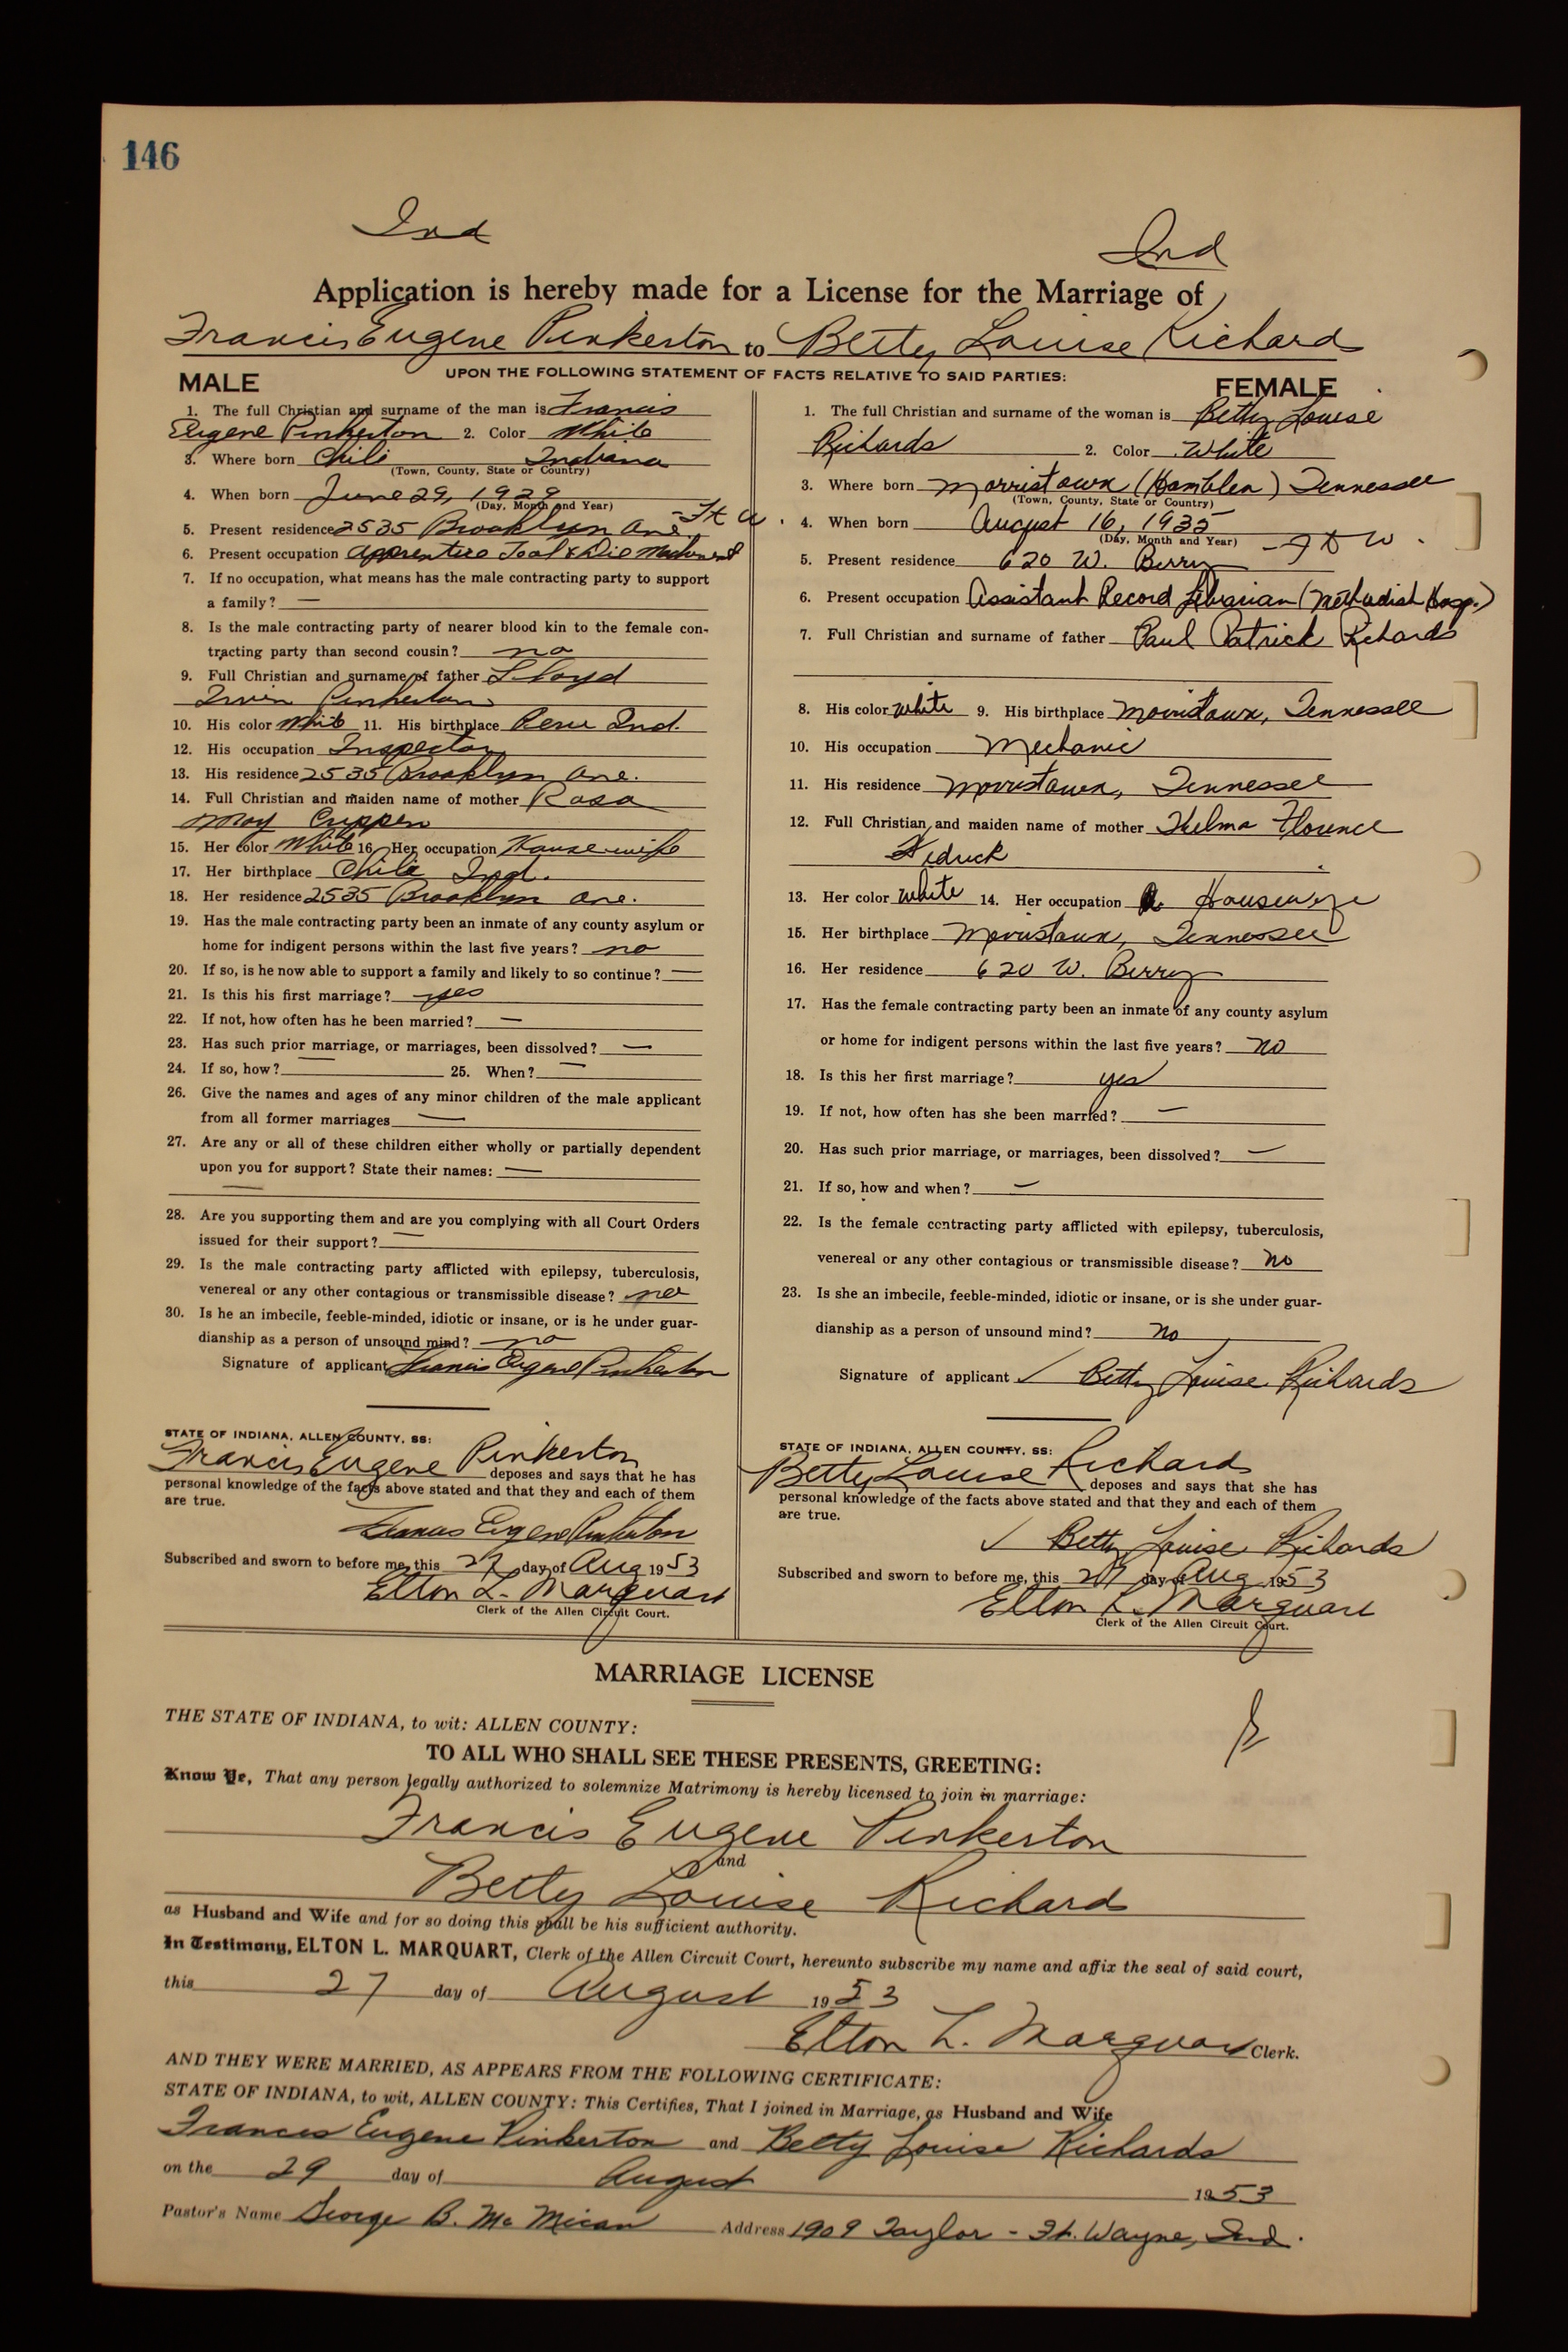 146
Ind Ind
Application is hereby made for a License for the Marriage of
Francis Eugene Pinkerton to Betty Louise Richard
UPON THE FOLLOWING STATEMENT OF FACTS RELATIVE TO SAID PARTIES:
MALE
1. The full Christian and surname of the man is Francis
Eugene Pinkerton 2. Color White
3. Where born Chili Indiana
(Town, County, State or Country)
4. When born June 29, 1929
(Day, Month and Year)
5. Present residence 2535 Brooklyn Ave - Ft W.
6. Present occupation Apprentice Tool & Die
7. If no occupation, what means has the male contracting party to support
a family? —
8. Is the male contracting party of nearer blood kin to the female con-
tracting party than second cousin? no
9. Full Christian and surname of father Lloyd
Irvin Pinkerton
10. His color White 11. His birthplace Peru Ind.
12. His occupation Inspector
13. His residence 2535 Brooklyn Ave.
14. Full Christian and maiden name of mother Rosa
May Crippen
15. Her color White 16. Her occupation Housewife
17. Her birthplace Chili Ind.
18. Her residence 2535 Brooklyn Ave.
19. Has the male contracting party been an inmate of any county asylum or
home for indigent persons within the last five years? no
20. If so, is he now able to support a family and likely to so continue? —
21. Is this his first marriage? yes
22. If not, how often has he been married? —
23. Has such prior marriage, or marriages, been dissolved? —
24. If so, how? — 25. When? —
26. Give the names and ages of any minor children of the male applicant
from all former marriages —
27. Are any or all of these children either wholly or partially dependent
upon you for support? State their names: —
—
28. Are you supporting them and are you complying with all Court Orders
issued for their support? —
29. Is the male contracting party afflicted with epilepsy, tuberculosis,
venereal or any other contagious or transmissible disease? no
30. Is he an imbecile, feeble-minded, idiotic or insane, or is he under guar-
dianship as a person of unsound mind? no
Signature of applicant Francis Eugene Pinkerton
STATE OF INDIANA, ALLEN COUNTY, SS:
Francis Eugene Pinkerton deposes and says that he has
personal knowledge of the facts above stated and that they and each of them
are true.
Francis Eugene Pinkerton
Subscribed and sworn to before me, this 27 day of Aug 1953
Elton L. Marquart
Clerk of the Allen Circuit Court.
FEMALE
1. The full Christian and surname of the woman is Betty Louise
Richards 2. Color White
3. Where born Morristown (Hamblen) Tennessee
(Town, County, State or Country)
4. When born August 16, 1935
(Day, Month and Year)
5. Present residence 620 W. Berry - Ft W.
6. Present occupation Assistant Record Librarian (Methodist Hosp.)
7. Full Christian and surname of father Paul Patrick Richards
8. His color white 9. His birthplace Morristown, Tennessee
10. His occupation Mechanic
11. His residence Morristown, Tennessee
12. Full Christian and maiden name of mother Thelma Florence
13. Her color White 14. Her occupation Housewife
15. Her birthplace Morristown, Tennessee
16. Her residence 620 W. Berry
17. Has the female contracting party been an inmate of any county asylum
or home for indigent persons within the last five years? no
18. Is this her first marriage? yes
19. If not, how often has she been married? —
20. Has such prior marriage, or marriages, been dissolved? —
21. If so, how and when? —
22. Is the female contracting party afflicted with epilepsy, tuberculosis,
venereal or any other contagious or transmissible disease? no
23. Is she an imbecile, feeble-minded, idiotic or insane, or is she under guar-
dianship as a person of unsound mind? no
Signature of applicant ✓ Betty Louise Richards
STATE OF INDIANA, ALLEN COUNTY, SS:
Betty Louise Richard deposes and says that she has
personal knowledge of the facts above stated and that they and each of them
are true.
✓ Betty Louise Richards
Subscribed and sworn to before me, this 27 day of Aug 1953
Elton L. Marquart
Clerk of the Allen Circuit Court.
MARRIAGE LICENSE
THE STATE OF INDIANA, to wit: ALLEN COUNTY:
TO ALL WHO SHALL SEE THESE PRESENTS, GREETING:
Know Ye, That any person legally authorized to solemnize Matrimony is hereby licensed to join in marriage:
Francis Eugene Pinkerton
and
Betty Louise Richard
as Husband and Wife and for so doing this shall be his sufficient authority.
In Testimony, ELTON L. MARQUART, Clerk of the Allen Circuit Court, hereunto subscribe my name and affix the seal of said court,
this 27 day of August 1953
Elton L. Marquart Clerk.
AND THEY WERE MARRIED, AS APPEARS FROM THE FOLLOWING CERTIFICATE:
STATE OF INDIANA, to wit, ALLEN COUNTY: This Certifies, That I joined in Marriage, as Husband and Wife
Frances Eugene Pinkerton and Betty Louise Richards
on the 29 day of August 1953
Pastor's Name George B. Mc Mican Address 1909 Taylor - Ft. Wayne, Ind.